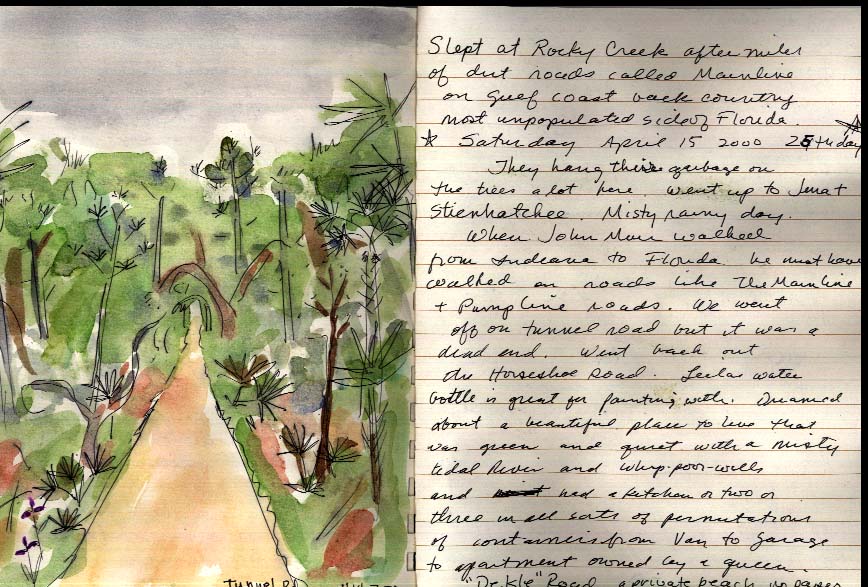 Slept at Rocky Creek after miles
of dirt roads called Mainline
on Gulf coast back country
most unpopulated side of Florida.
* Saturday April 15 2000 25th day
They hang their garbage on
the trees a lot here went up to Jena +
Stienhatchee. Misty rainy day.
When John Muir walked
from Indeana to Florida he must have
walked on roads like The Mainline
+ Pump line roads. We went
off on tunnel road but it was a
dead end. Went back out
the Horseshoe Road. water
bottle is great for painting with. Dreamed
about a beautiful place to live that
was green and quiet with a misty
tidal River and whip-poor-wills
and had a kitchen or two or
three in all sorts of permutations
of containers from Van to Garage
to apartment owned by a queen.
"De.kle" Road a private beach no
tunnel Rd